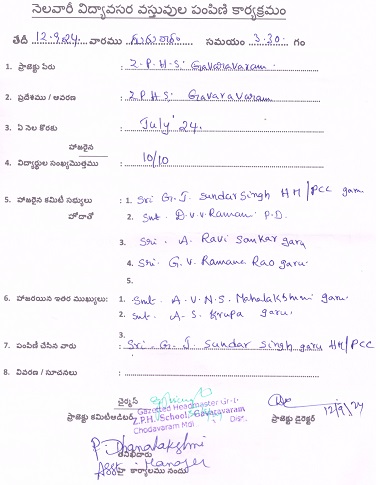 నెలవారీ విద్యావసర వస్తువుల పంపిణి కార్యక్రమం
తేదీ 12-9-24 వారము గురువారం సమయం 3-30 గం
1. ప్రాజెక్టు పేరు : Z-P-H-S: Gavaravaram
2. ప్రదేశము / ఆవరణ : Z.P.H.S: Gavaravaram
3. ఏ నెల కొరకు : July' 24.
హాజరైన
4. విద్యార్థుల సంఖ్య/మొత్తము : 10/10
5. హాజరైన కమిటీ సభ్యులు : 1. Sri G. J. Sundar Singh HM/PCC garu
హోదాతో 2. Smt. D.V.V. Ramani P.D.
3. Sri. A. Ravi Sankar garu
4. Sri. G. V. Ramana Rao garu.
5.
6. హాజరయిన ఇతర ముఖ్యులు: 1. Smt. A.V.N.S. Mahalakshmi garu.
2. Smt. A-S. Krupa garu.
3.
7. పంపిణి చేసిన వారు : Sri. G. J. Sundar Singh garu HM/PCC
8. వివరణ / సూచనలు :
ఛైర్మన్
ప్రాజెక్టు కమిటీ
Gazetted Headmaster Gr-I
Z.P.H. School, Gavaravaram
Chodavaram Mdl Dist.
12/9/24
ప్రాజెక్టు డైరెక్టర్
P. Dhanalakshmi
తనిఖీదారు
Asst. Manager
కార్యాలము నందు